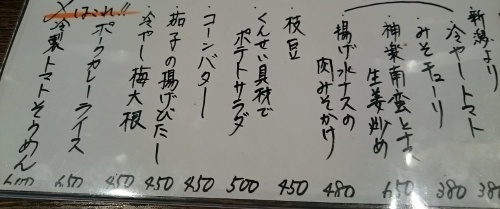 新潟より
冷やしトマト 380
みそキューリ 380
神楽南蛮と
生姜炒め 650
揚げ水ナスの
肉みそかけ 480
枝豆 450
くんせい具材で
ポテトサラダ 500
コーンバター 450
茄子の揚げびたし 450
冷やし梅大根 450
ポークカレーライス 650
冷製トマトそうめん